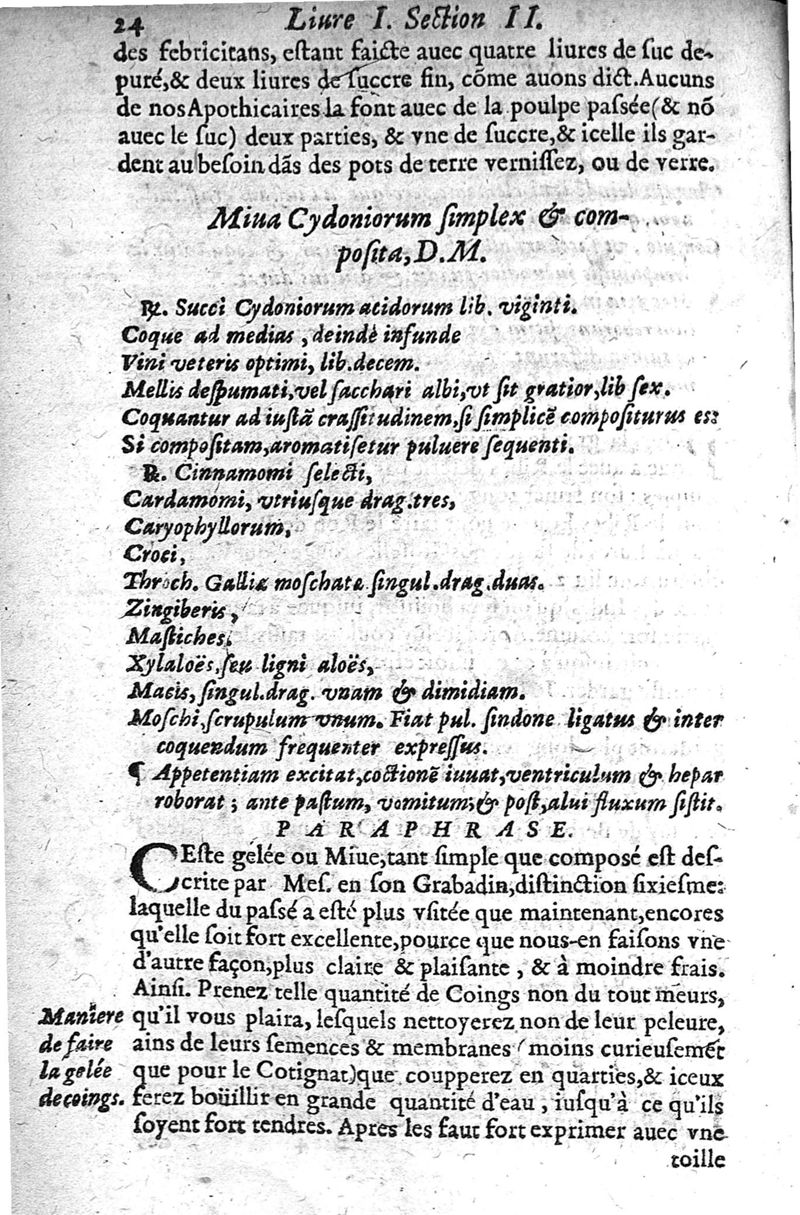 24 Liure I. Section II.
des febricitans, estant faicte auec quatre liures de suc de-
puré,& deux liures de succre fin, cõme auons dict. Aucuns
de nos Apothicaires la font auec de la poulpe passée(& nõ
auec le suc) deux parties, & vne de succre,& icelle ils gar-
dent au besoin dãs des pots de terre vernissez, ou de verre.
Miua Cydoniorum simplex & com-
posita, D. M.
℞. Succi Cydoniorum acidorum lib. viginti.
Coque ad medias, deindè infunde
Vini veteris optimi, lib. decem.
Mellis despumati, vel sacchari albi, vt sit gratior, lib sex.
Coquantur ad iustã crassitudinem, si simplicẽ compositurus es:
Si compositam, aromatisetur puluere sequenti.
℞. Cinnamomi selecti,
Cardamomi, vtriusque drag. tres,
Caryophyllorum,
Croci,
Throch. Galliæ moschatæ singul. drag. duas.
Zingiberis,
Mastiches,
Xylaloës, seu ligni aloës,
Macis, singul. drag. vnam & dimidiam.
Moschi, scrupulum vnum. Fiat pul. sindone ligatus & inter
coquendum frequenter expressus.
¶ Appetentiam excitat, coctionẽ iuuat, ventriculum & hepar
roborat; ante pastum, vomitum; & post, alui fluxum sistit.
PARAPHRASE.
CEste gelée ou Miue, tant simple que composé est des-
crite par Mes. en son Grabadin, distinction sixiesme:
laquelle du passé a esté plus vsitée que maintenant, encores
qu'elle soit fort excellente, pource que nous-en faisons vne
d'autre façon, plus claire & plaisante, & à moindre frais.
Ainsi. Prenez telle quantité de Coings non du tout meurs,
qu'il vous plaira, lesquels nettoyerez non de leur peleure,
ains de leurs semences & membranes (moins curieusemẽt
que pour le Cotignat) que coupperez en quartiers, & iceux
ferez boüillir en grande quantité d'eau, iusqu'à ce qu'ils
soyent fort tendres. Apres les faut fort exprimer auec vne
toille
Maniere
de faire
la gelée
de coings.